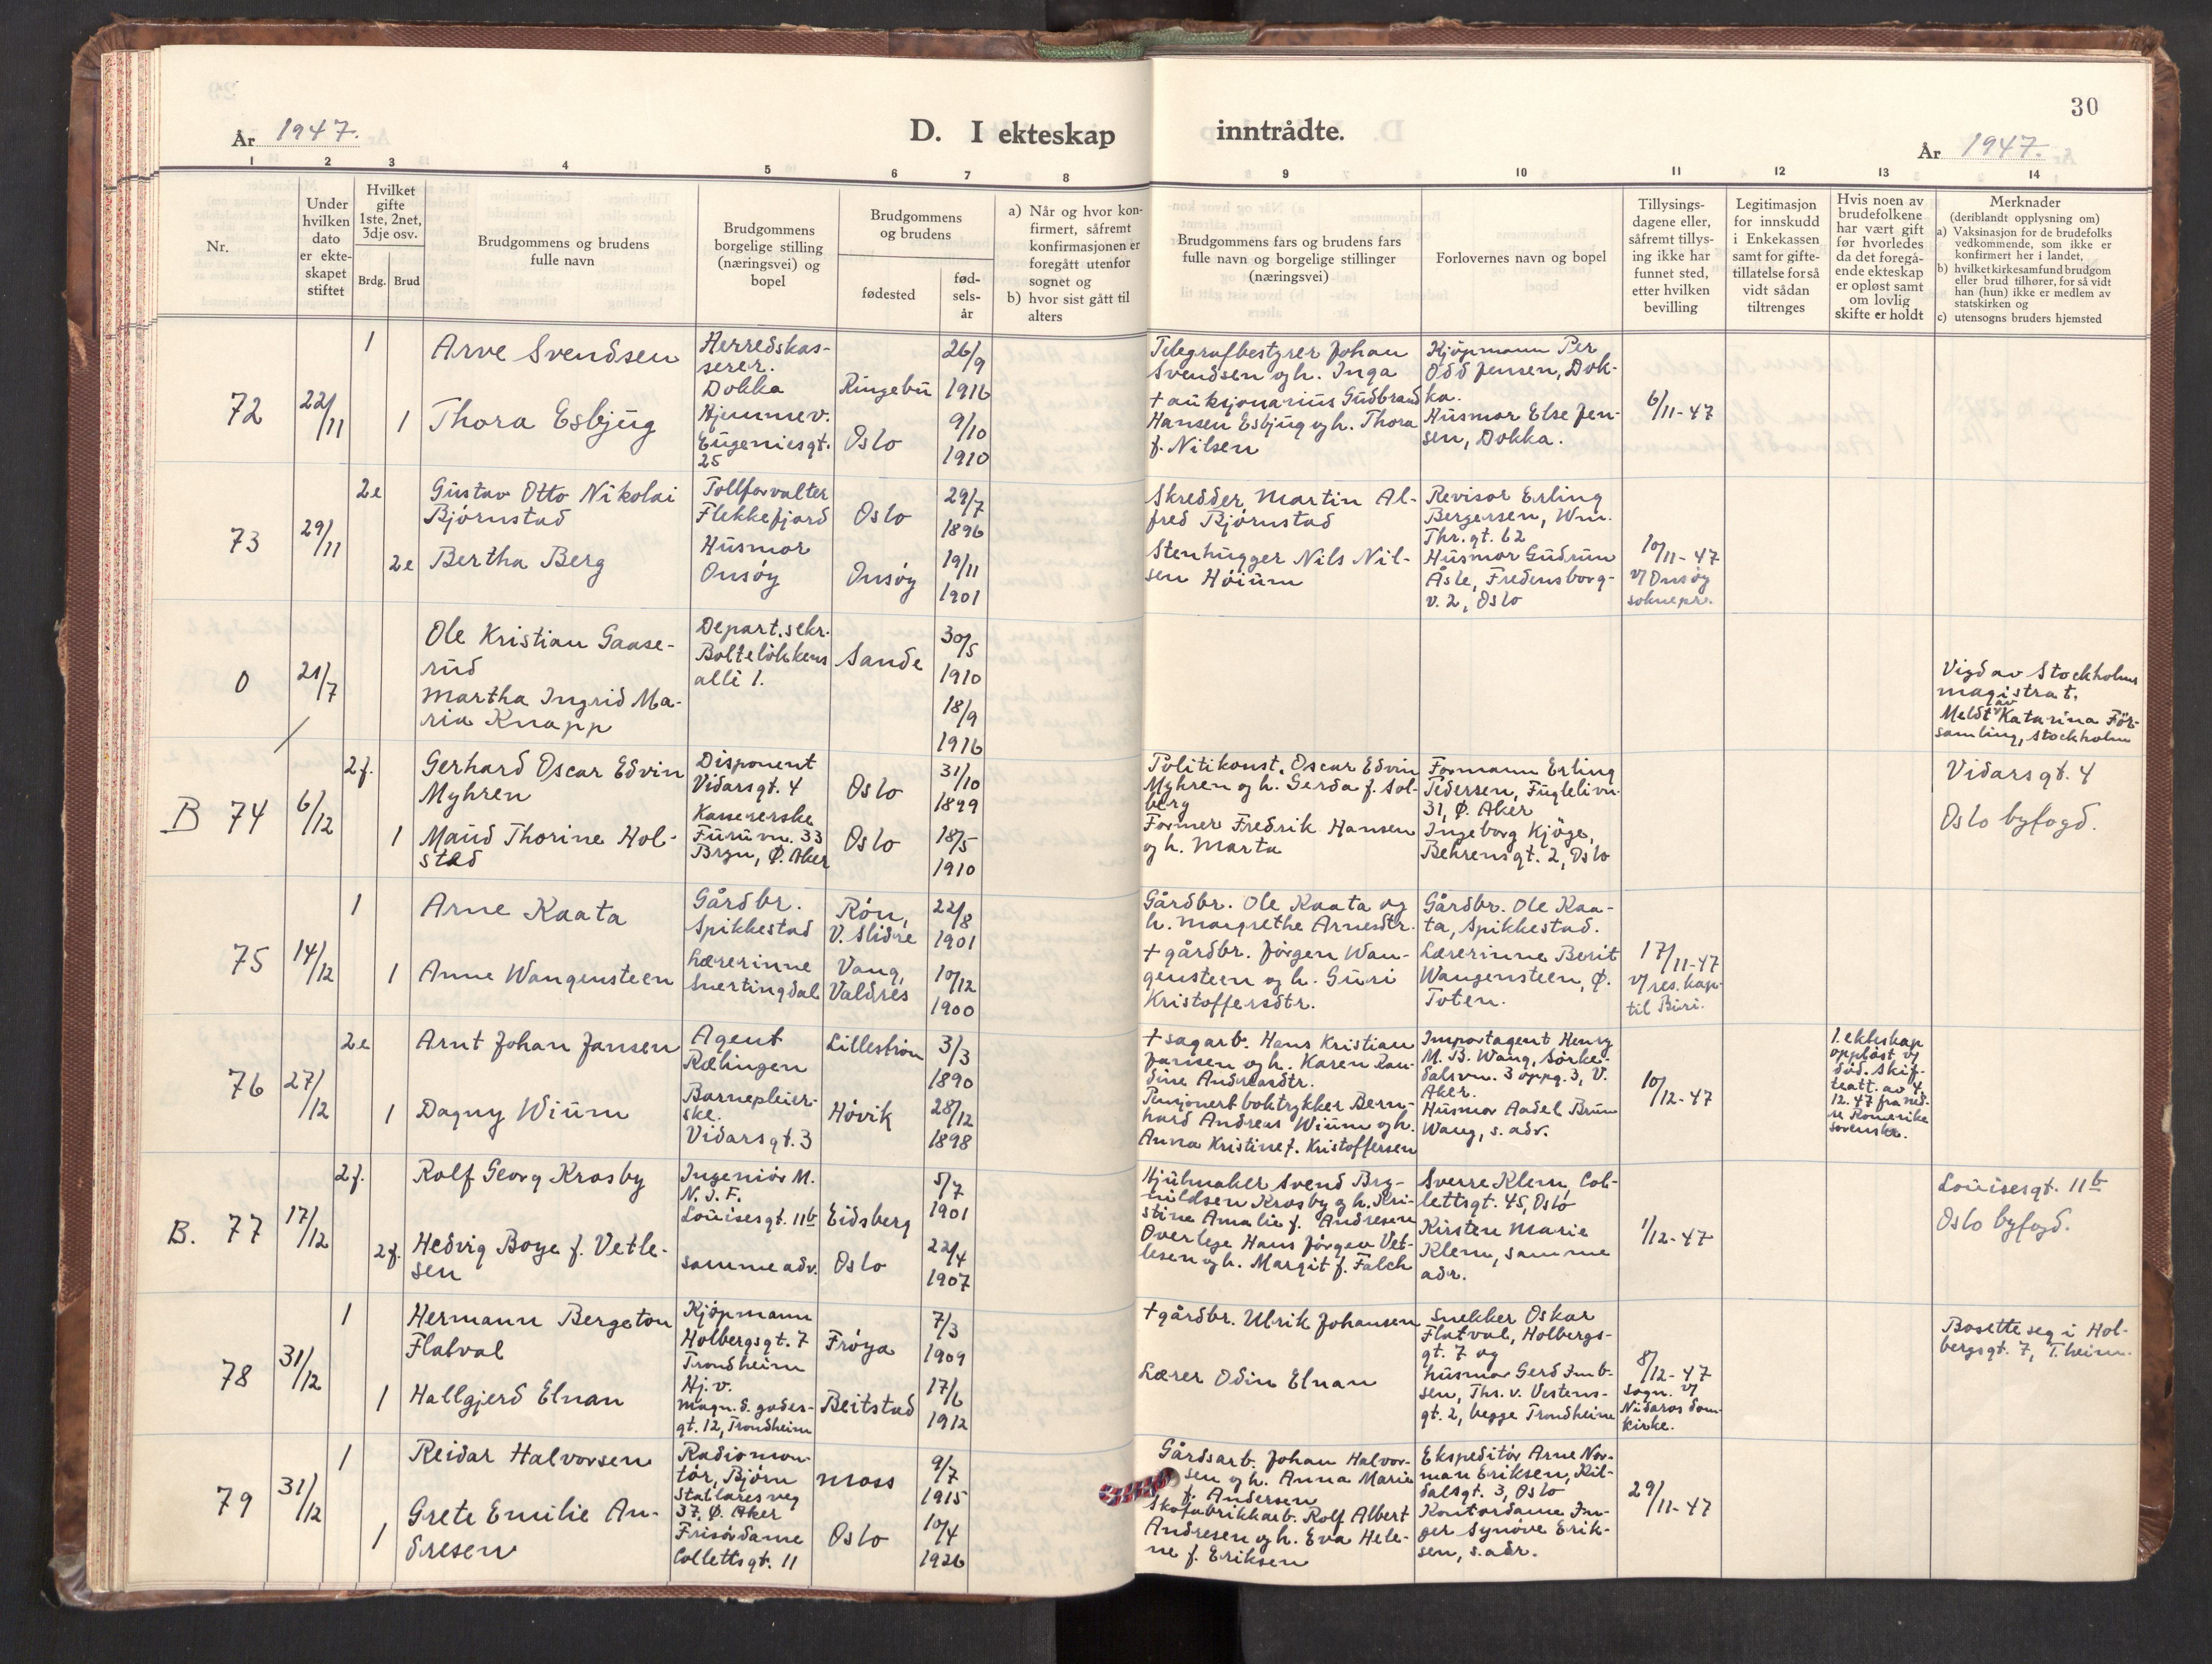 30
År 1947.
D. I ekteskap inntrådte.
År 1947.
1 2 3 4 5 6 7 8 9 10 11 12 13 14
Nr.
Under
hvilken
dato
er ekte-
skapet
stiftet
Hvilket
gifte
1ste, 2net,
3dje osv.
Brdg. Brud
Brudgommens og brudens
fulle navn
Brudgommens
borgelige stilling
(næringsvei) og
bopel
Brudgommens
og brudens
fødested
fød-
sels-
år
a) Når og hvor kon-
firmert, såfremt
konfirmasjonen er
foregått utenfor
sognet og
b) hvor sist gått til
alters
Brudgommens fars og brudens fars
fulle navn og borgelige stillinger
(næringsvei)
Forlovernes navn og bopel
Tillysings-
dagene eller,
såfremt tillys-
ing ikke har
funnet sted,
etter hvilken
bevilling
Legitimasjon
for innskudd
i Enkekassen
samt for gifte-
tillatelse for så
vidt sådan
tiltrenges
Hvis noen av
brudefolkene
har vært gift
før hvorledes
da det foregå-
ende ekteskap
er opløst samt
om lovlig
skifte er holdt
Merknader
(deriblandt opplysning om)
a) Vaksinasjon for de brudefolks
vedkommende, som ikke er
konfirmert her i landet,
b) hvilket kirkesamfund brudgom
eller brud tilhører, for så vidt
han (hun) ikke er medlem av
statskirken og
c) utensogns bruders hjemsted
72
22/11
1
Arve Svendsen
Herredskas-
serer.
Dokka
Ringebu
26/9
1916
Telegrafbestyrer Johan
Svendsen og h. Inga
Kjøpmann Per
Odd Jensen, Dok-
ka.
6/11-47
1
Thora Esbjug
Hjemmev.
Eugeniesgt.
25
Oslo
9/10
1910
+ auksjonarius Gudbrand
Hansen Esbjug og h. Thora
f. Nilsen
Husmor Else Jen-
sen, Dokka.
73
29/11
2e
Gustav Otto Nikolai
Bjørnstad
Tollforvalter
Flekkefjord
Oslo
29/7
1896
Skredder Martin Al-
fred Bjørnstad
Revisor Erling
Bergersen, Wm.
Thr. gt. 62
2e
Bertha Berg
Husmor
Onsøy
Onsøy
19/11
1901
Stenhugger Nils Nil-
sen Høium
Husmor Gudrun
Åsle, Fredensborg-
v. 2, Oslo
10/11-47
v/ Onsøy
soknepr.
0
21/7
Ole Kristian Gaase-
rud
Depart.sekr.
Bolteløkkens
allé 1.
Sande
30/5
1910
Martha Ingrid Ma-
ria Knapp
18/9
1916
Vigd av Stockholms
magistrat.
Meldt av Katarina För-
samling, Stockholm
B 74
6/12
2f.
Gerhard Oscar Edvin
Myhren
Disponent
Vidarsgt. 4
Oslo
31/10
1899
Politikonst. Oscar Edvin
Myhren og h. Gerda f. Sol-
berg
Formann Erling
Pedersen, Fuglelivn.
31, Ø. Aker
Vidarsgt. 4
Oslo byfogd.
1
Maud Thorine Hol-
stad
Kassererske
Furuvn. 33
Bryn, Ø. Aker
Oslo
18/5
1910
Former Fredrik Hansen
og h. Marta
Ingeborg Kjøge,
Behrensgt. 2, Oslo
75
14/12
1
Arne Kaata
Gårdbr.
Spikkestad
Røn,
V. Slidre
22/8
1901
Gårdbr. Ole Kaata og
h. Margrethe Arnesdtr.
Gårdbr. Ole Kaa-
ta, Spikkestad.
1
Anne Wangensteen
Lærerinne
Snertingdal
Vang,
Valdres
10/12
1900
+ gårdbr. Jørgen Wan-
gensteen og h. Guri
Kristoffersdtr.
Lærerinne Berit
Wangensteen, Ø.
Toten.
17/11-47
v/ res. kap.
til Biri.
76
27/12
2e
Arnt Johan Jansen
Agent
Rælingen
Lillestrøm
3/3
1890
+ sagarb. Hans Kristian
Jansen og h. Karen Ran-
dine Andreasdtr.
Importagent Henry
M. B. Wang, Sørke-
dalsvn. 3 oppg. 3, V.
Aker.
10/12-47
1. ekteskap
oppløst v/
død. Skif-
teatt. av 4.
12.47 fra ned-
re Romerike
sorenskr.
1
Dagny Wium
Barnepleier-
ske.
Vidarsgt. 3
Høvik
28/12
1898
Pensjonert boktrykker Bern-
hard Andreas Wium og h.
Anna Kristine f. Kristoffersen
Husmor Aadel Brun
Wang, s. adr.
B. 77
17/12
2f.
Rolf Georg Krosby
Ingeniør M.
N. I. F.
Louisesgt. 11b
Eidsberg
5/7
1901
Hjulmaker Svend Bry-
nildsen Krosby og h. Kri-
stine Amalie f. Andresen
Sverre Klem, Col-
lettsgt. 45, Oslo
1/12-47
Louisesgt. 11b
Oslo byfogd.
2f.
Hedvig Boye f. Vetle-
sen
samme adr.
Oslo
22/4
1907
Overlege Hans Jørgen Vet-
lesen og h. Margit f. Falch
Kirsten Marie
Klem, samme
adr.
78
31/12
1
Hermann Bergeton
Flatval
Kjøpmann
Holbergsgt. 7
Trondheim
Frøya
7/3
1909
+ gårdbr. Ulrik Johansen
Snekker Oskar
Flatval, Holbergs-
gt. 7 og
Bosette seg i Hol-
bergsgt. 7, T.heim.
1
Hallgjerd Elnan
Hj.v.
Magn. d. godes-
gt. 12, Trondheim
Beitstad
17/6
1912
Lærer Odin Elnan
husmor Gerd Jmb-
sen, Ths. v. Vestens-
gt. 2, begge Trondheim
8/12-47
sogn. v/
Nidaros dom-
kirke.
79
31/12
1
Reidar Halvorsen
Radiomon-
tør, Bjørn
Stallares veg
37, Ø. Aker
Moss
9/7
1915
Gårdsarb. Johan Halvor-
sen og h. Anna Marie
f. Andersen
Ekspeditør Arne Nor-
man Eriksen, Kil-
dalsgt. 3, Oslo
29/11-47
1
Grete Emilie An-
dresen
Frisørdame
Collettsgt. 11
Oslo
10/4
1926
Skofabrikkarb. Rolf Albert
Andresen og h. Eva Hele-
ne f. Eriksen
Kontordame In-
ger Synøve Erik-
sen, s. adr.